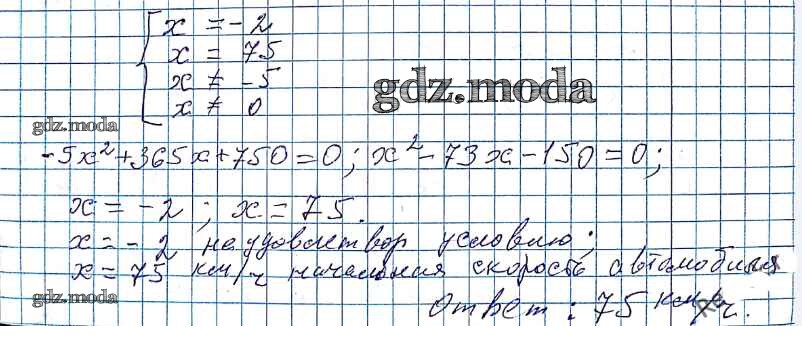 x = -2
x = 75
x ≠ -5
gdz.moda
x ≠ 0
gdz.moda
-5x² + 365x + 750 = 0; x² - 73x - 150 = 0;
x = -2; x = 75.
x = -2 не удовлетвор условию;
x = 75 км/ч начальная скорость автомобиля
gdz.moda
Ответ: 75 км/ч.